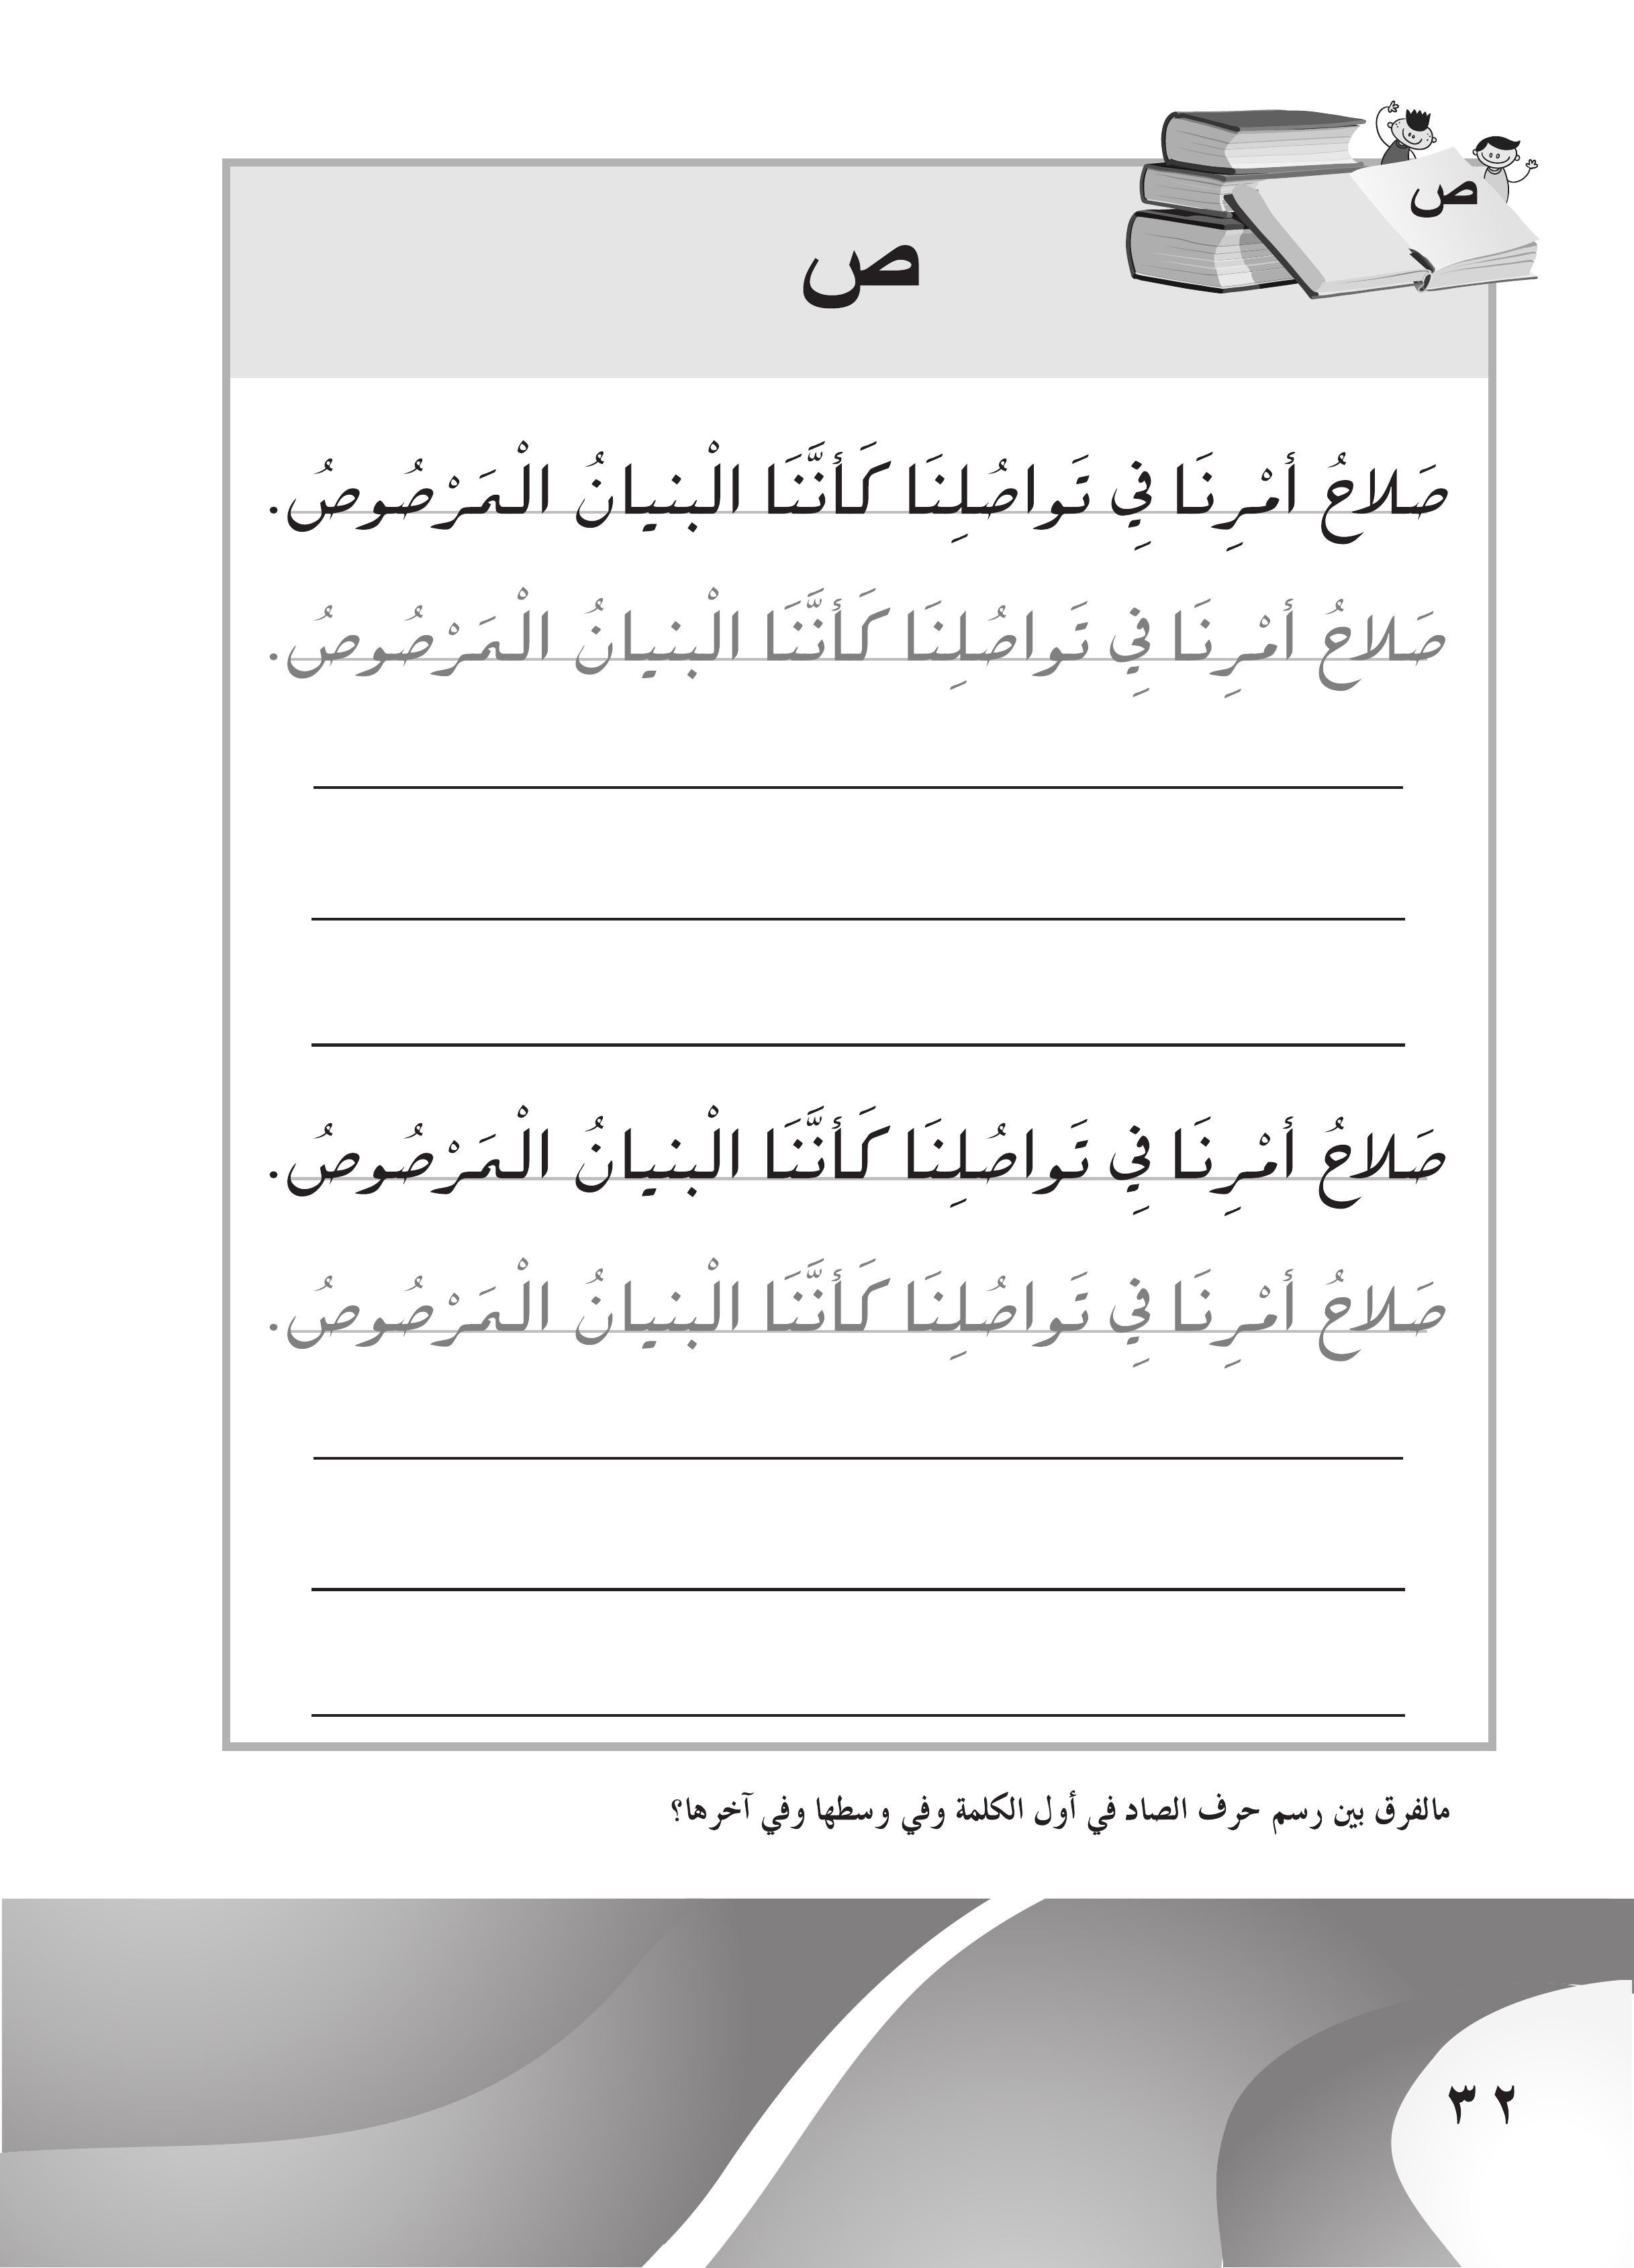 ص
ص
صَلاحُ أمْرِنَا فِي تَواصُلِنَا كَأنَّنَا الْبنيانُ الْمَرْصُوصُ.
صَلاحُ أمْرِنَا فِي تَواصُلِنَا كَأنَّنَا الْبنيانُ الْمَرْصُوصُ.
صَلاحُ أمْرِنَا فِي تَواصُلِنَا كَأنَّنَا الْبنيانُ الْمَرْصُوصُ.
صَلاحُ أمْرِنَا فِي تَواصُلِنَا كَأنَّنَا الْبنيانُ الْمَرْصُوصُ.
مالفرق بين رسم حرف الصاد في أول الكلمة وفي وسطها وفي آخرها؟
٣٢